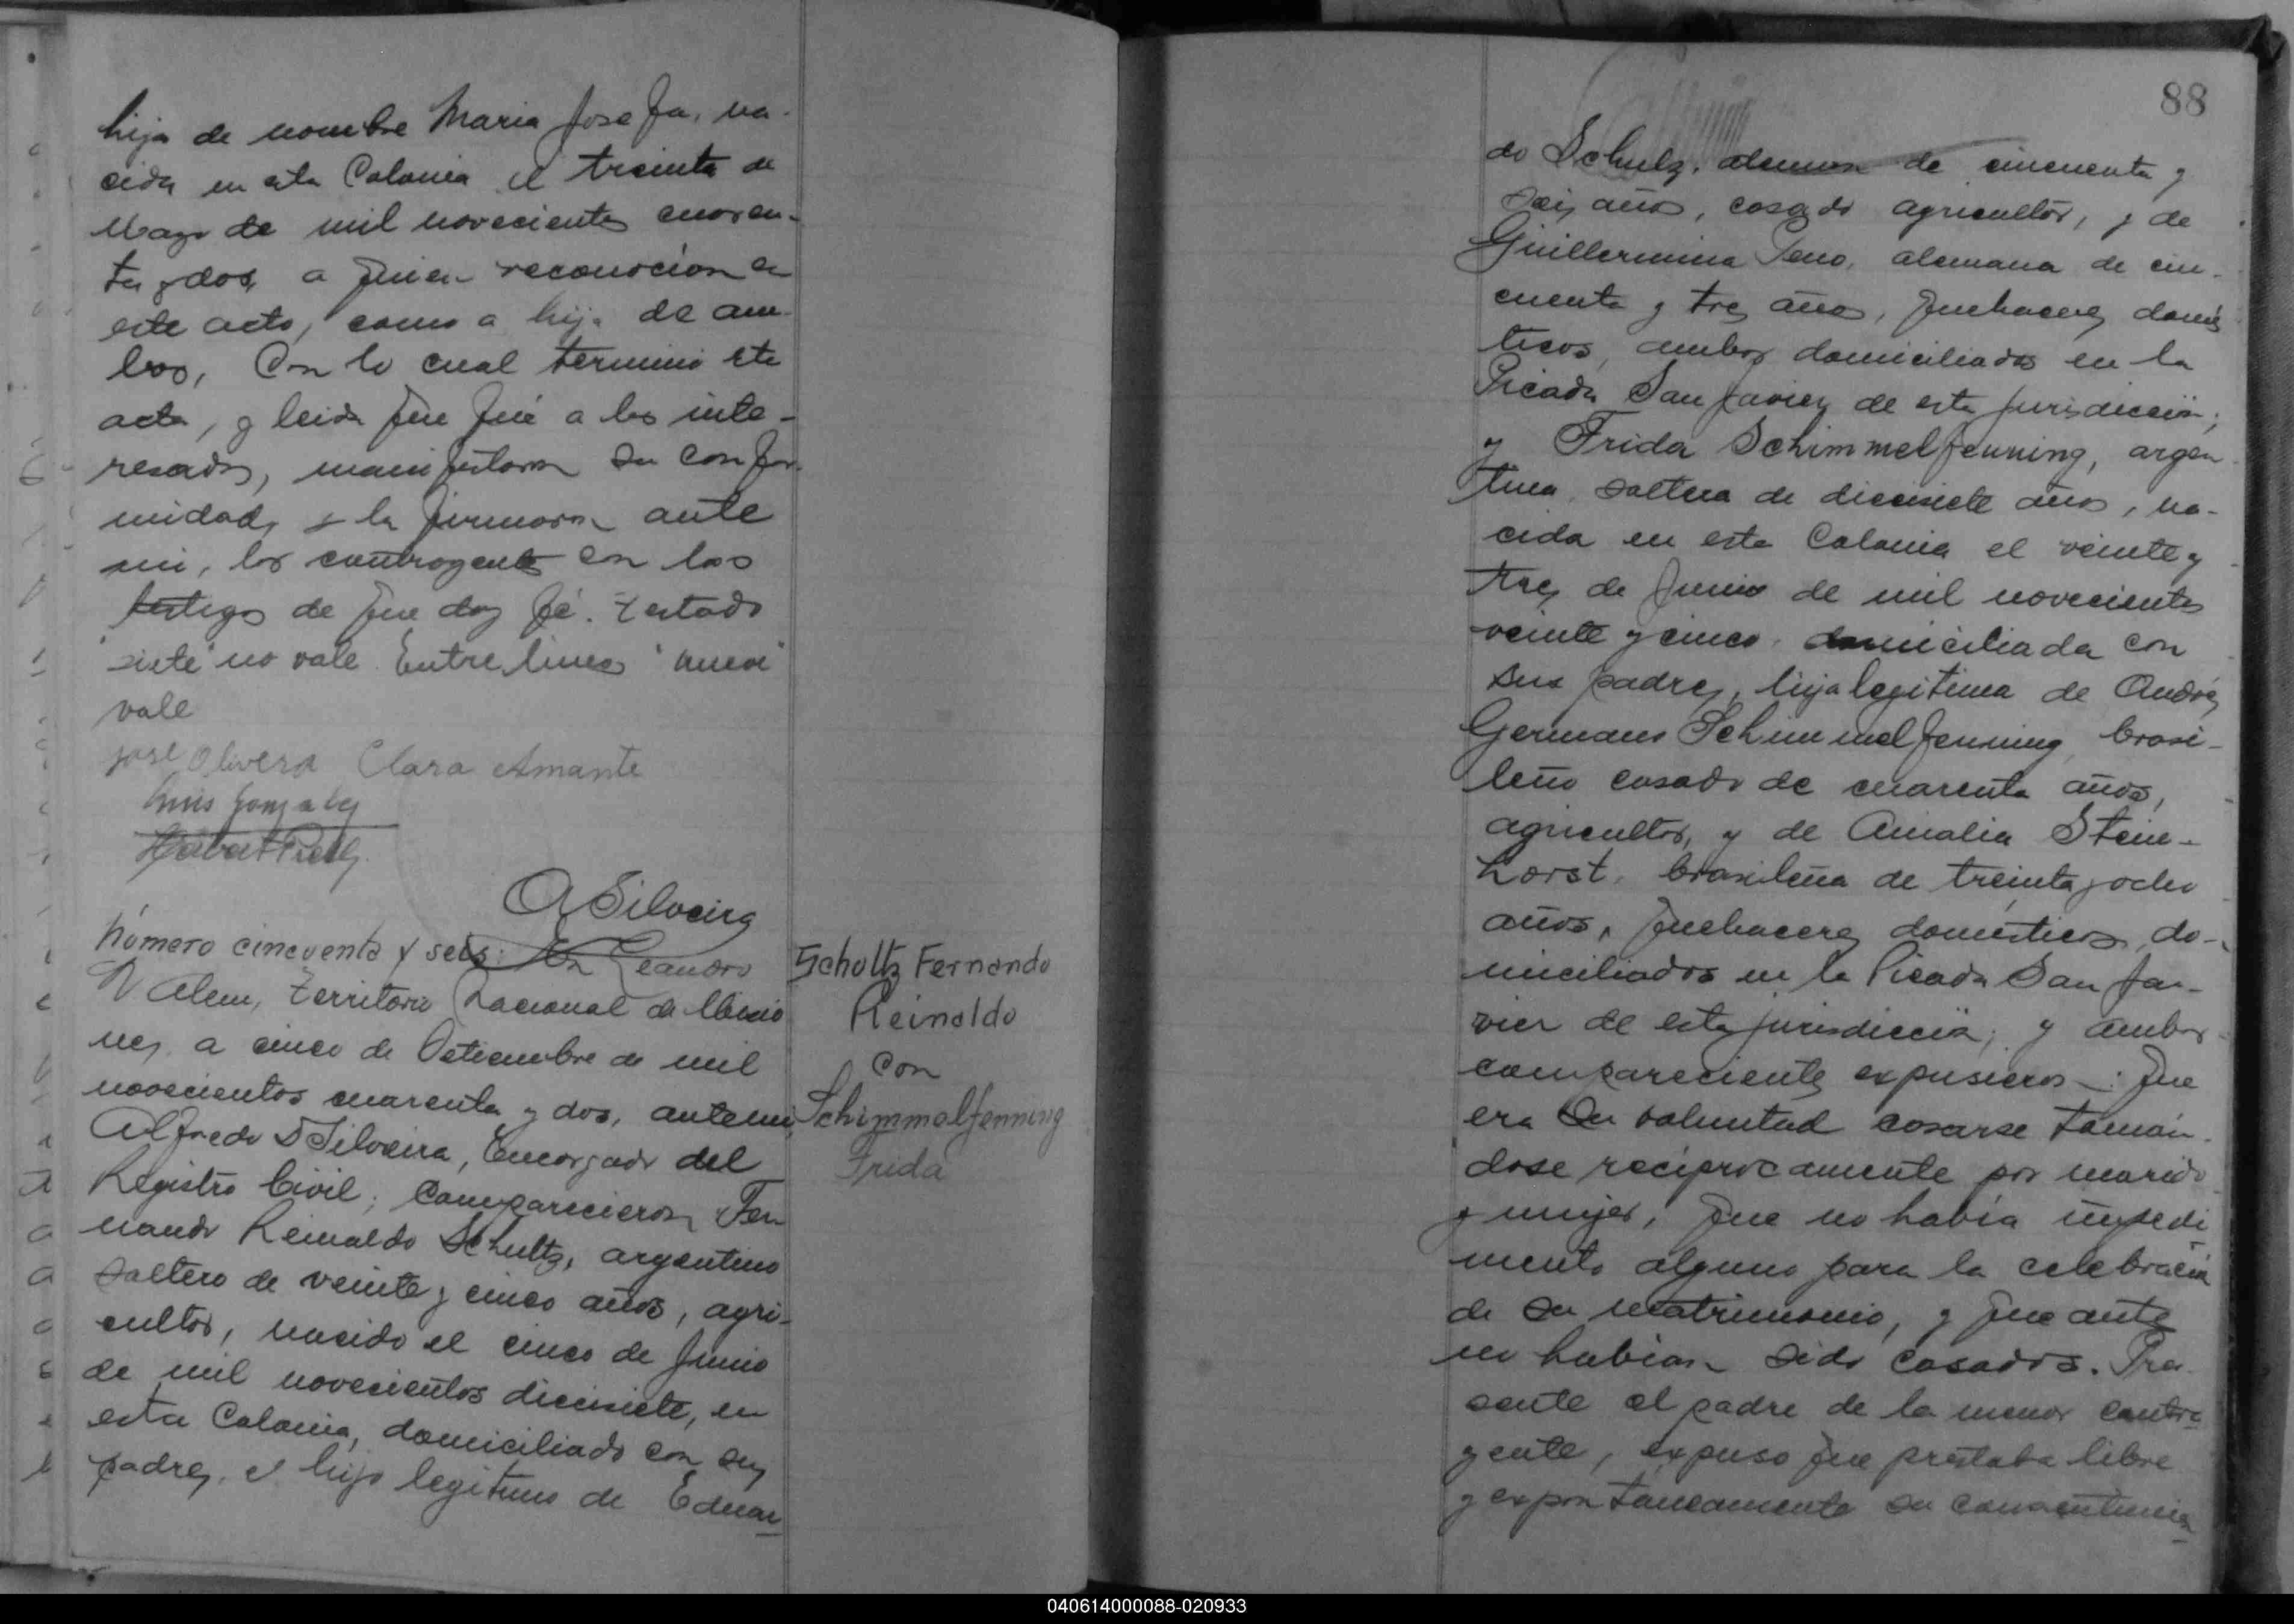 hija de nombre Maria Josefa, na-
cida en esta Colonia el treinta de
Mayo de mil novecientos cuaren-
ta y dos, a quien reconocian en
este acto, como a hija de am-
bos, Con lo cual terminó este
acta, y leida que fué a los inte-
resados, manifestaron su confor-
midad, y la firmaron ante
mi, los contrayentes con los
testigos de que doy fé. Testado
"siete" no vale. Entre lineas "nueve"
vale
José Olivera Clara Amante
Luis Gonzalez
A Silveira
Número cincuenta y seis: En Leandro
N Alem, Territorio Nacional de Misio
nes, a cinco de Setiembre de mil
novecientos cuarenta y dos, ante mi,
Alfredo D Silveira, Encargado del
Registro Civil; comparecieron Fer
nando Reinaldo Schultz, argentino
soltero de veinte y cinco años, agri-
cultor, nacido el cinco de Junio
de mil novecientos diecisiete, en
esta Colonia, domiciliado con sus
padres, el hijo legitimo de Eduar-
Schultz Fernando
Reinaldo
con
Schimmelfenning
Frida
88
do Schulz, aleman de cincuenta y
seis años, casado agricultor, y de
Guillermina Peno, alemana de cin-
cuenta y tres años, quehaceres domés
ticos, ambos domiciliados en la
Picada San Javier, de esta jurisdicción;
y Frida Schimmelfenning, argen
tina, soltera de diecisiete años, na-
cida en esta Colonia el veinte y
tres de Junio de mil novecientos
veinte y cinco, domiciliada con
sus padres, hija legitima de Andrés
Germano Schimmelfenning, brasi-
leño casado de cuarenta años,
agricultor, y de Amalia Stein-
horst, brasileña de treinta y ocho
años, quehaceres domésticos, do-
miciliados en la Picada San Ja-
vier de esta jurisdicción; y ambos
comparecientes expusieron: Que
era su voluntad casarse toman-
dose reciprocamente por marido
y mujer, que no había impedi
mento alguno para la celebración
de su matrimonio, y que antes
no habian sido casados. Pre-
sente el padre de la menor contra
yente, expuso que prestaba libre
y expontaneamente su consentimien-
040614000088-020933